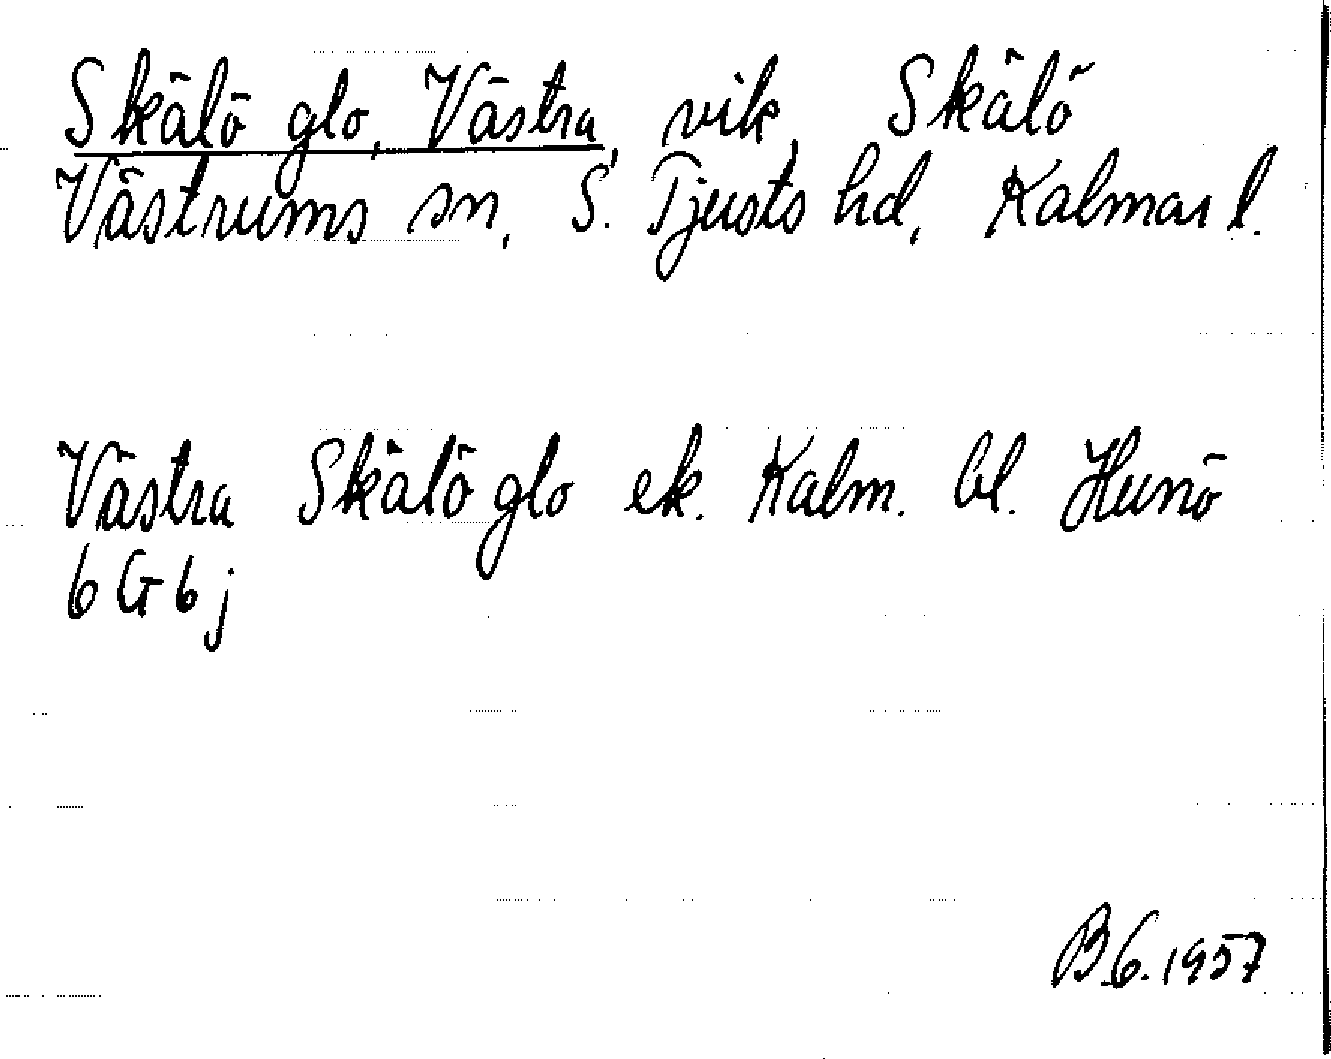 Skälö glo, Västra, vik, Skälö
Västrums sn, S. Tjusts hd, Kalmar l.
Västra Skälö glo ek. Kalm. bl. Hunö
6 G 6 j
B.G. 1957